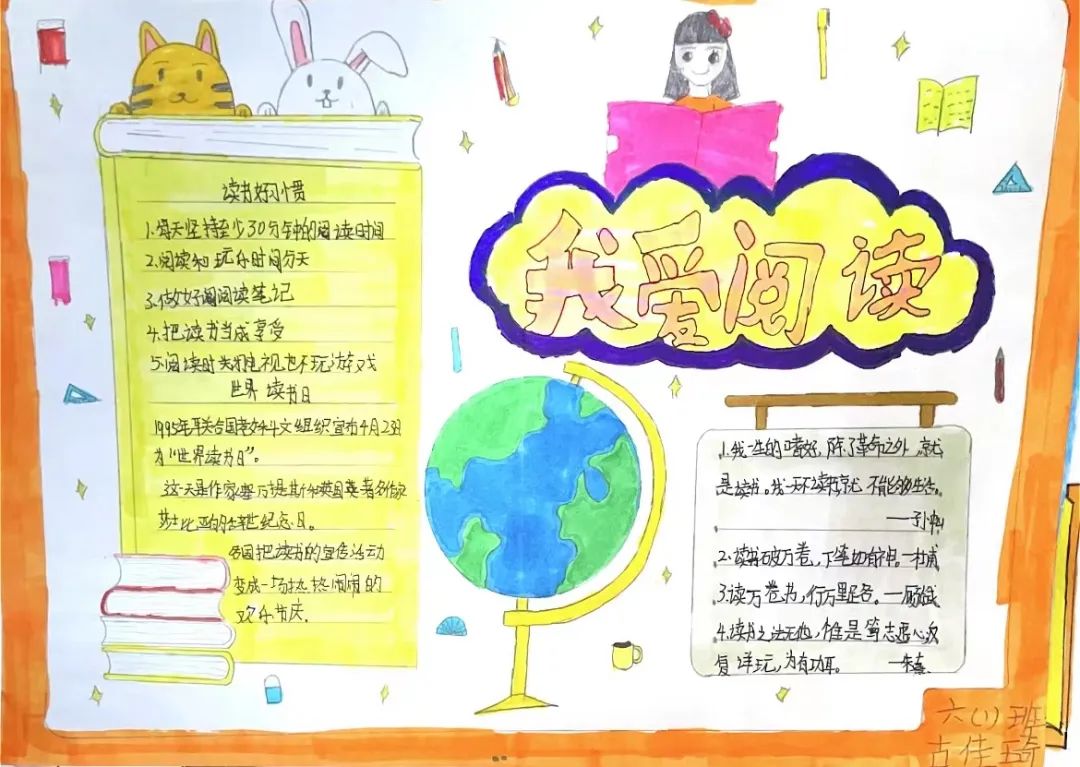 我爱阅读
读书好习惯
1.每天坚持至少30分钟的阅读时间
2.阅读和玩乐时间分天
3.做好阅读笔记
4.把读书当成享受
5.阅读时关掉电视也不玩游戏
世界读书日
1995年联合国教科文组织宣布4月23日
为“世界读书日”。
这天是作家塞万提斯和英国著名作家
莎士比亚的辞世纪念日。
各国把读书的宣传活动
变成一场热热闹闹的
欢乐节庆.
1.我一生的嗜好,除了革命之外,就
是读书。我一天不读书,就不能够生活。
——孙中山
2.读书破万卷,下笔如有神。—杜甫
3.读万卷书,行万里路。—顾
4.读书之法无他,惟是笃志虚心,反
复详玩,为有功耳。 —朱熹
六(1)班
古佳琦